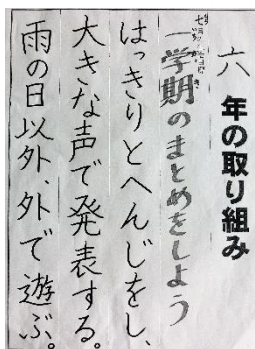 六年の取り組み
一学期のまとめをしよう
はっきりとへんじをし、
大きな声で発表する。
雨の日以外、外で遊ぶ。